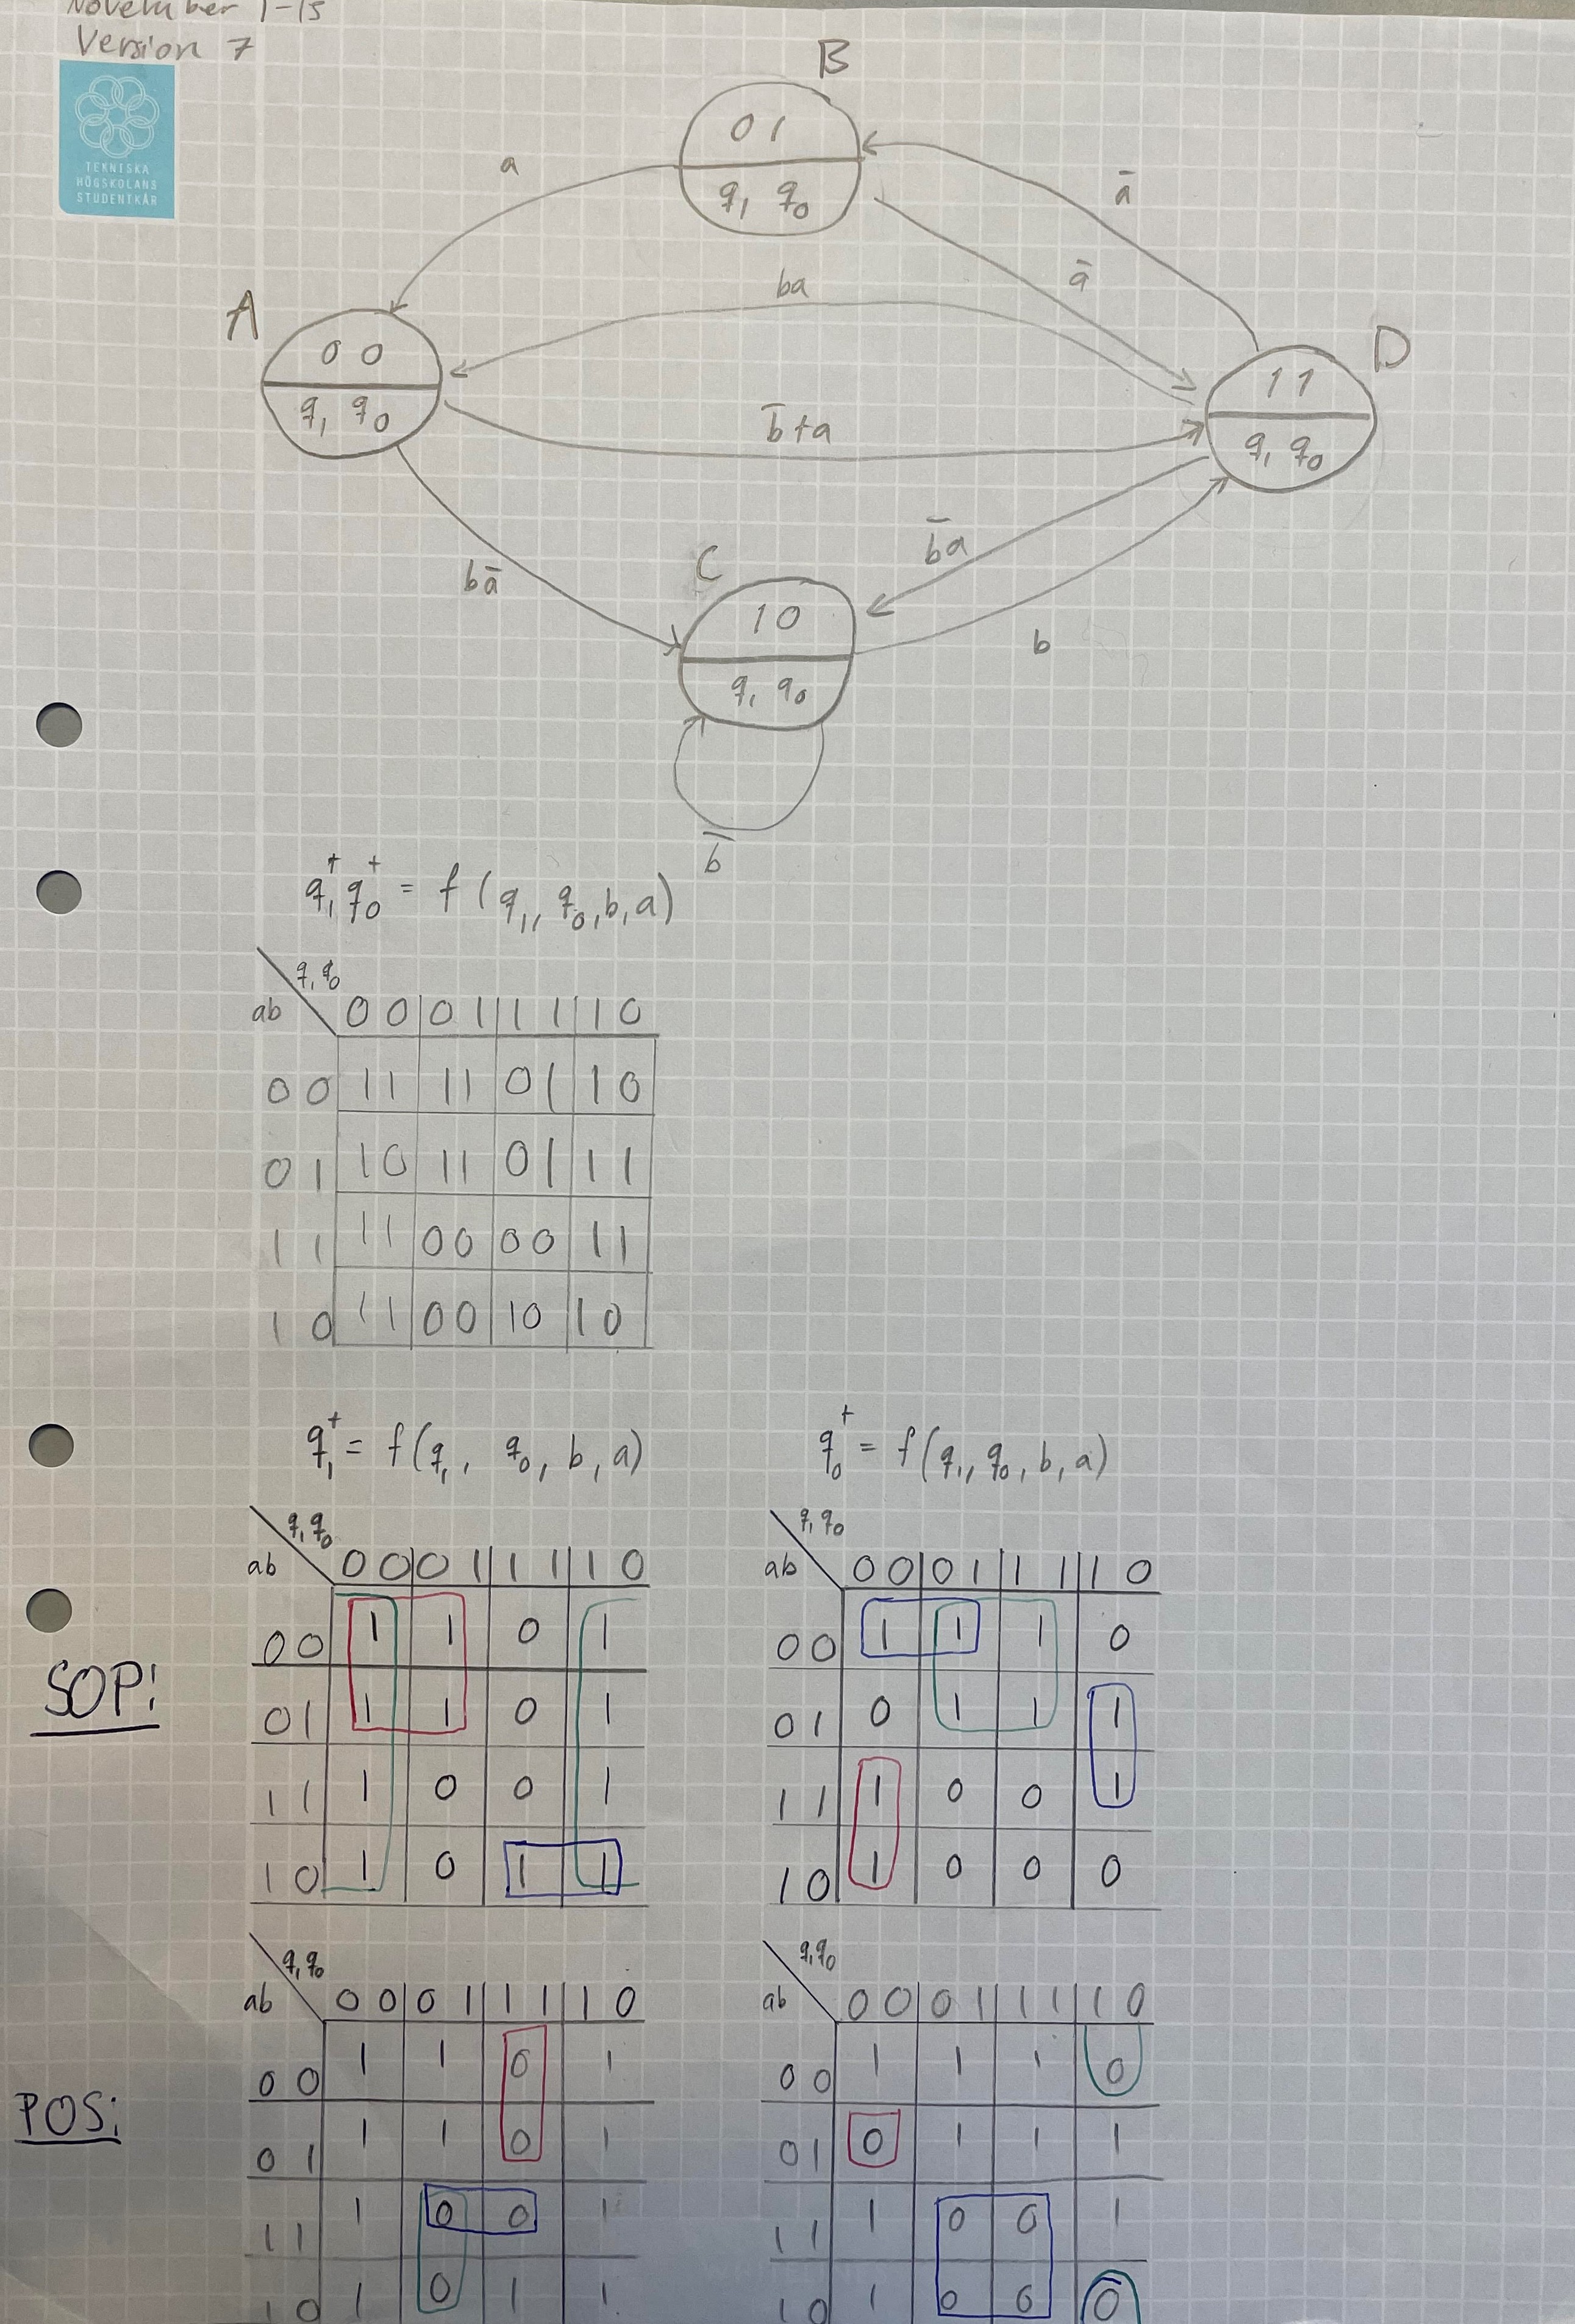 November 1-15
Version 7
TEKNISKA
HÖGSKOLANS
STUDENTKÅR
B
01
q₁ q₀
a
ā
ā
ba
A
00
q₁ q₀
D
11
q₁ q₀
b̄+a
b̄a
bā
C
10
q₁ q₀
b
b̄
q₁⁺q₀⁺ = f(q₁, q₀, b, a)
q₁q₀
ab 00 01 11 10
00 11 11 01 10
01 10 11 01 11
11 11 00 00 11
10 11 00 10 10
q₁⁺ = f(q₁, q₀, b, a) q₀⁺ = f(q₁, q₀, b, a)
SOP:
q₁q₀ q₁q₀
ab 00 01 11 10 ab 00 01 11 10
00 1 1 0 1 00 1 1 1 0
01 1 1 0 1 01 0 1 1 1
11 1 0 0 1 11 1 0 0 1
10 1 0 1 1 10 1 0 0 0
POS:
q₁q₀ q₁q₀
ab 00 01 11 10 ab 00 01 11 10
00 1 1 0 1 00 1 1 1 0
01 1 1 0 1 01 0 1 1 1
11 1 0 0 1 11 1 0 0 1
10 1 0 1 1 10 1 0 0 0